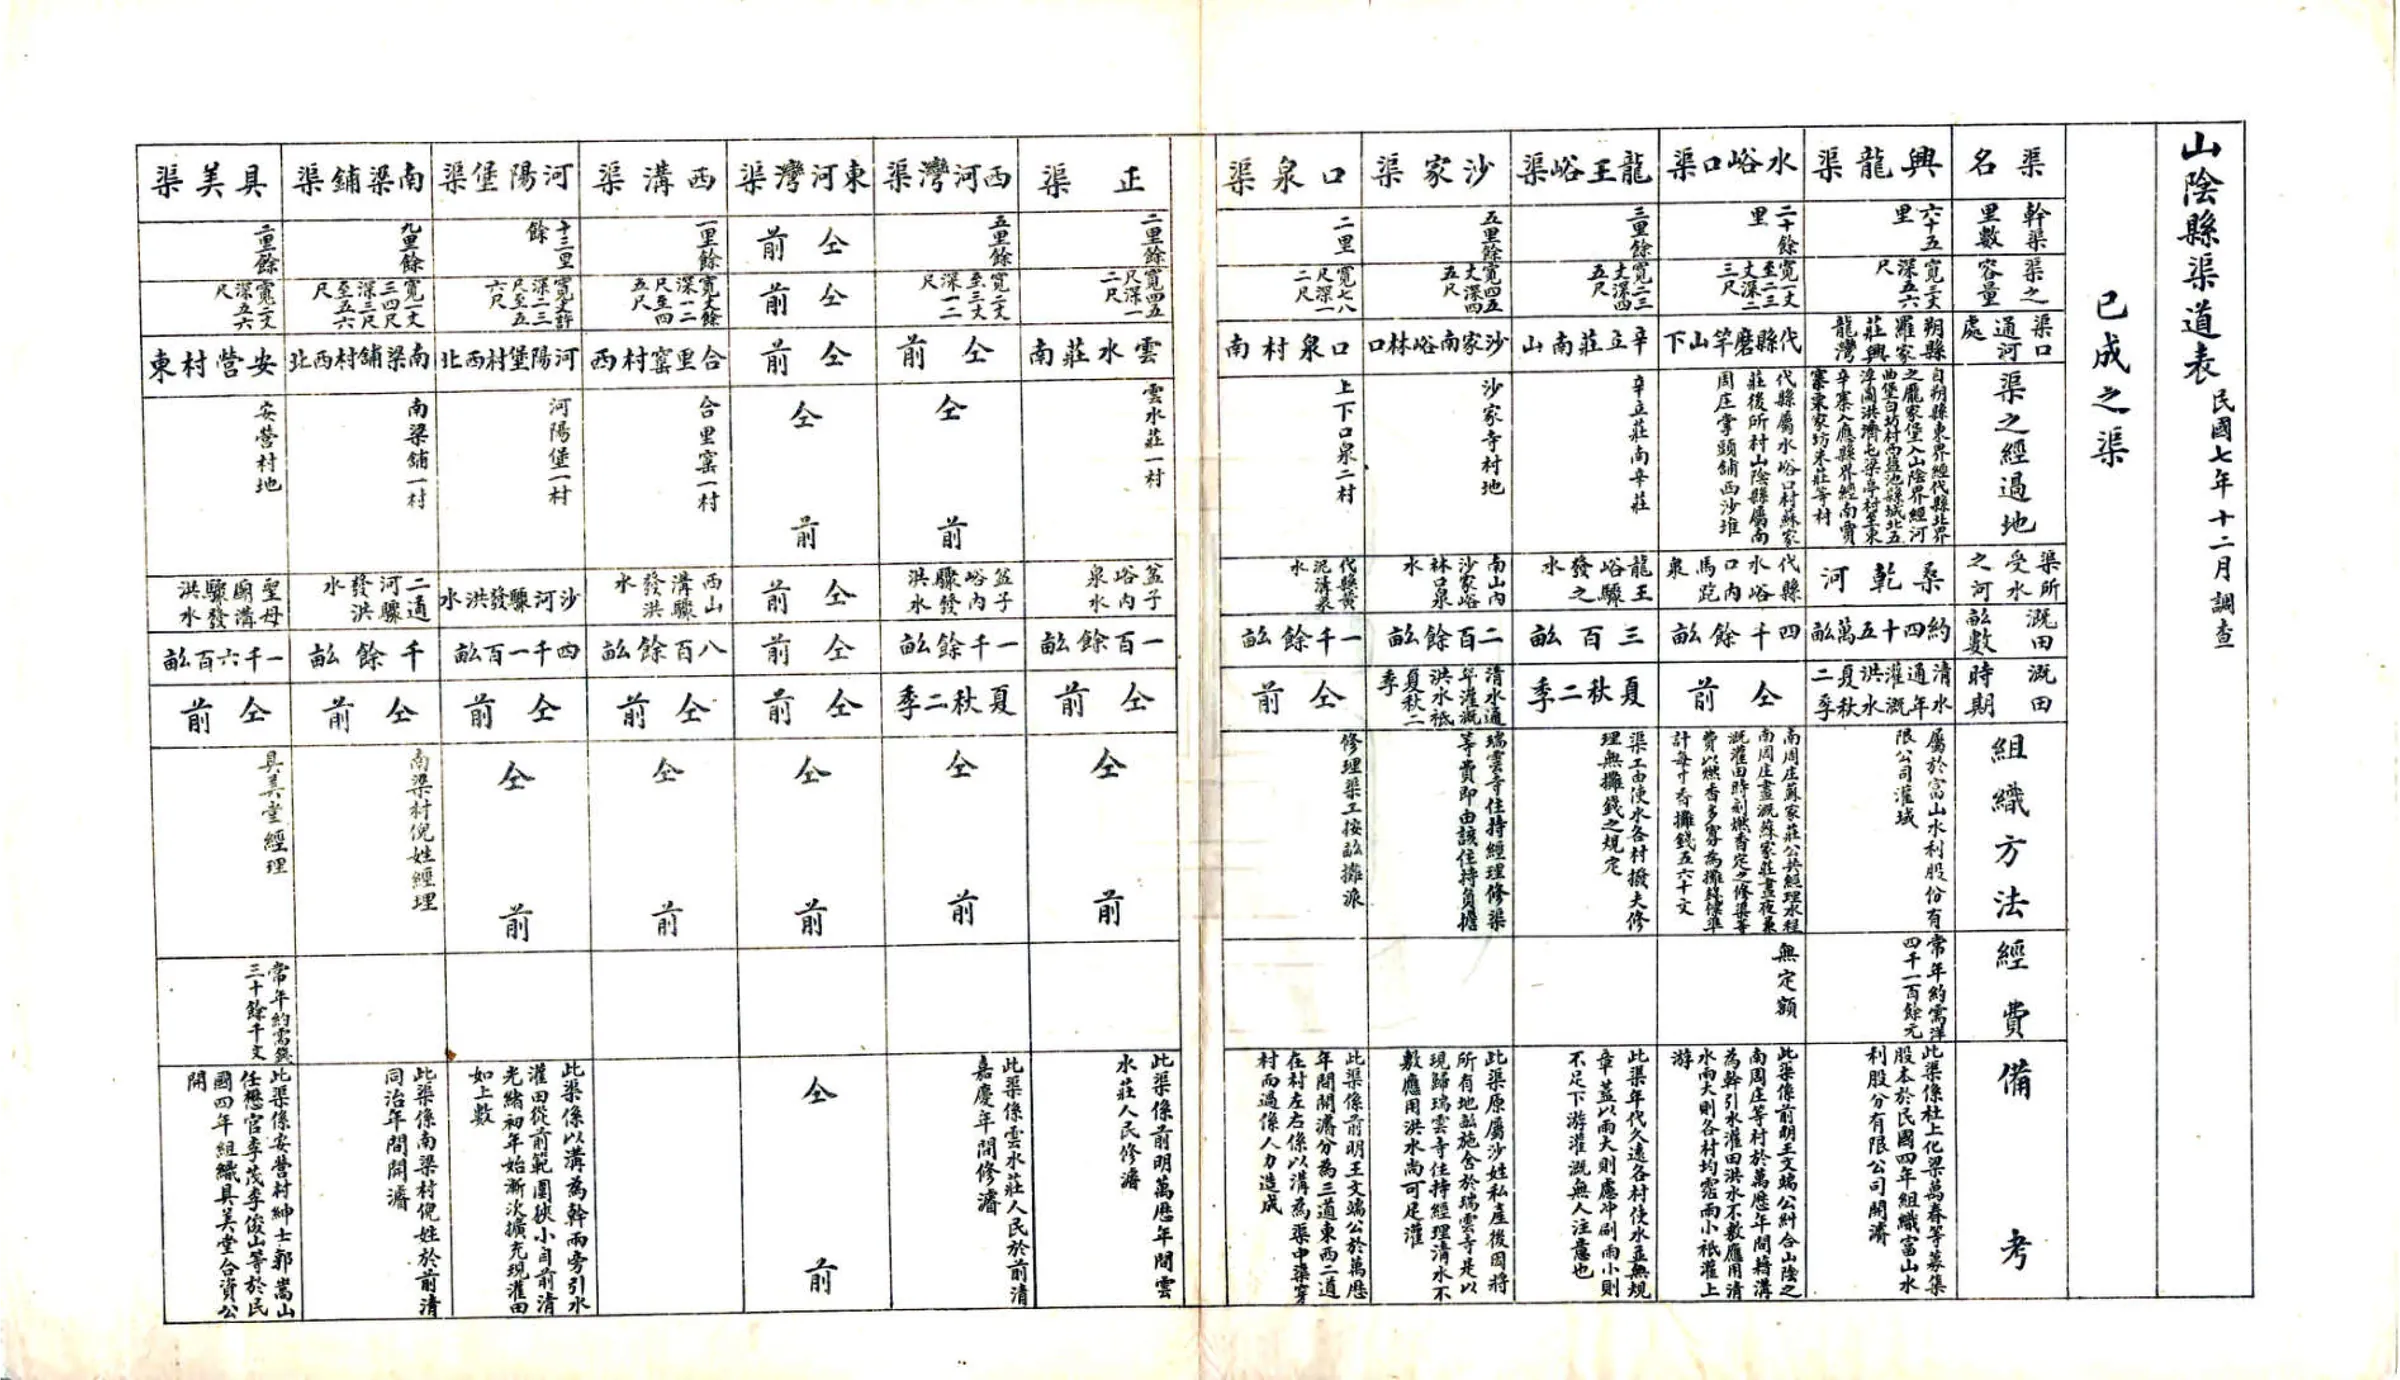 山陰縣渠道表 民國七年十二月調查
已成之渠
渠名
幹渠里數
渠之容量
渠口通河處
渠之經過地
渠所受水之河
溉田畝數
溉田時期
組織方法
經費
備考
興龍渠
六十五里
寬三丈深五六尺
朔縣羅家莊興龍灣
自朔縣東界經代縣北界
之龐家堡入山陰界經河
曲堡白坊村西盐池縣城北五
浮圖洪濟屯梁亭村至東
辛寨入應縣界經南賈
寨東家坊朱莊等村
桑乾河
約四十五萬畝
清水通年灌溉洪水夏秋二季
屬於富山水利股份有
限公司灌域
常年約需洋
四千一百餘元
此渠係杜上化梁萬春等募集
股本於民國四年組織富山水
利股份有限公司開濬
水峪口渠
二十餘里
寬一丈至二三丈深二三尺
代縣磨竿山下
代縣屬水峪口村蘇家
莊後所村山陰縣屬南
周庄掌頭舖西沙堆
代縣水峪口內馬跑泉
四千餘畝
仝前
南周庄蘇家莊公共經理水程
南周庄晝溉蘇家莊晝夜兼
溉灌田時刻燃香定之修渠等
費以燃香多寡為攤錢標準
計每寸香攤錢五六十文
無定額
此渠係前明王文端公糾合山陰之
南周庄等村於萬歷年間藉溝
為幹引水灌田洪水不敷應用清
水雨大則各村均霑雨小祇灌上
游
龍王峪渠
三里餘
寬二三丈深四五尺
辛立莊南山
辛立莊南辛莊
龍王峪驟發之水
三百畝
夏秋二季
渠工由使水各村撥夫修
理無攤錢之規定
此渠年代久遠各村使水並無規
章蓋以雨大則慮冲刷雨小則
不足下游灌溉無人注意也
沙家渠
五里餘
寬四五丈深四五尺
沙家南峪林口
沙家寺村地
南山內沙家峪林口泉水
二百餘畝
清水通年灌溉洪水祇夏秋二季
瑞雲寺住持經理修渠
等費即由該住持負擔
此渠原屬沙姓私產後因將
所有地畝施舍於瑞雲寺是以
現歸瑞雲寺住持經理清水不
敷應用洪水尚可足灌
口泉渠
二里
寬七八尺深一二尺
口泉村南
上下口泉二村
代縣黃泥溝泉水
一千餘畝
仝前
修理渠工按畝攤派
此渠係前明王文端公於萬歷
年間開濬分為三道東西二道
在村左右係以溝為渠中渠穿
村而過係人力造成
正渠
二里餘
寬四五尺深一二尺
雲水莊南
雲水莊一村
盆子峪內泉水
一百餘畝
仝前
仝前
此渠係前明萬歷年間雲
水莊人民修濬
西河灣渠
五里餘
寬二丈至三丈深一二尺
仝前
仝前
盆子峪內驟發洪水
一千餘畝
夏秋二季
仝前
此渠係雲水莊人民於前清
嘉慶年間修濬
東河灣渠
仝前
仝前
仝前
仝前
仝前
仝前
仝前
仝前
仝前
西溝渠
一里餘
寬丈餘深一二尺至四五尺
合里窰村西
合里窰一村
西山溝驟發洪水
八百餘畝
仝前
仝前
河陽堡渠
十三里餘
寬丈許深二三尺至五六尺
河陽堡村西北
河陽堡一村
沙河驟發洪水
四千一百畝
仝前
仝前
此渠係以溝為幹兩旁引水
灌田從前範圍狹小自前清
光緒初年始漸次擴充現灌田
如上數
南梁舖渠
九里餘
寬一丈三四尺深三尺至五六尺
南梁舖村西北
南梁舖一村
二通河驟發洪水
千餘畝
仝前
南梁村倪姓經理
此渠係南梁村倪姓於前清
同治年間開濬
具美渠
二里餘
寬二丈深五六尺
安營村東
安營村地
聖母廟溝驟發洪水
一千六百畝
仝前
具美堂經理
常年約需錢
三十餘千文
此渠係安營村紳士郭嵩山
任懋官李茂李俊山等於民
國四年組織具美堂合資公
開